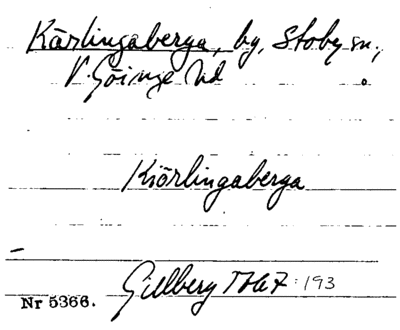 Kärlingaberga, by, Stoby sn,
V. Göinge hd
Kiörlingaberga
Gillberg : 193
Nr 5366.